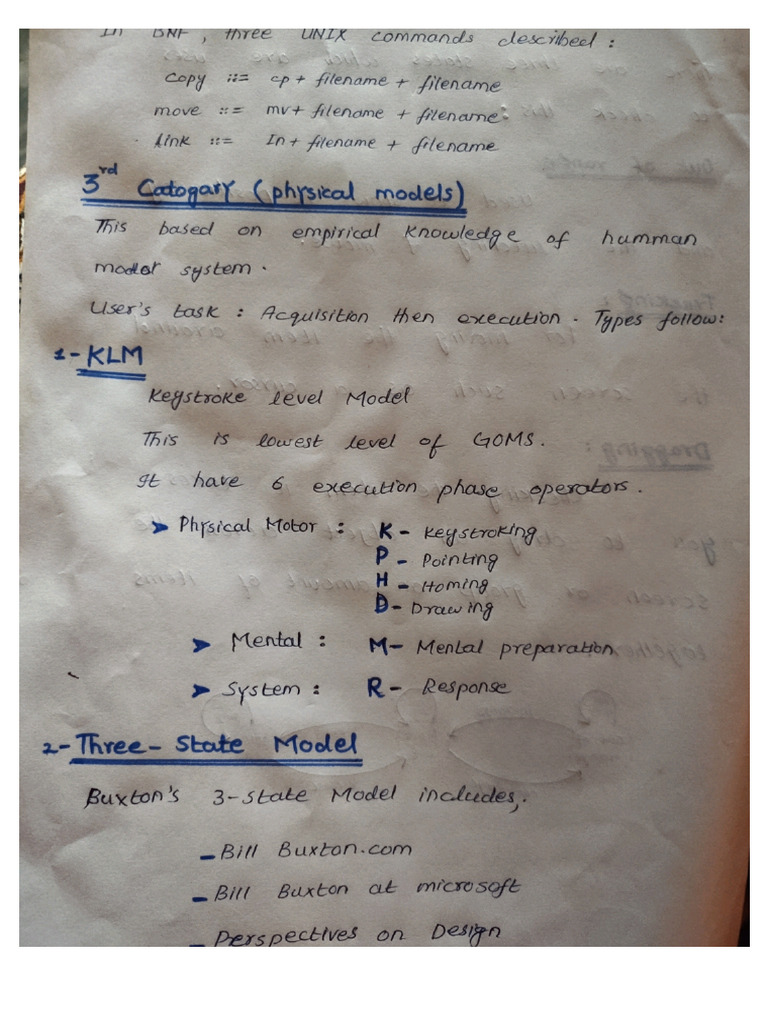 In BNF, three UNIX commands described :
copy ::= cp + filename + filename
move ::= mv + filename + filename
link ::= ln + filename + filename
3rd Catogary (physical models)
This based on empirical knowledge of humman
motor system.
User's task : Acquisition then execution. Types follow:
1- KLM
Keystroke level Model
This is lowest level of GOMS.
It have 6 execution phase operators.
➤ Physical Motor : K - Keystroking
P - Pointing
H - Homing
D - Drawing
➤ Mental : M - Mental preparation
➤ System : R - Response
2- Three-State Model
Buxton's 3-state Model includes,
- Bill Buxton.com
- Bill Buxton at microsoft
- Perspectives on Design